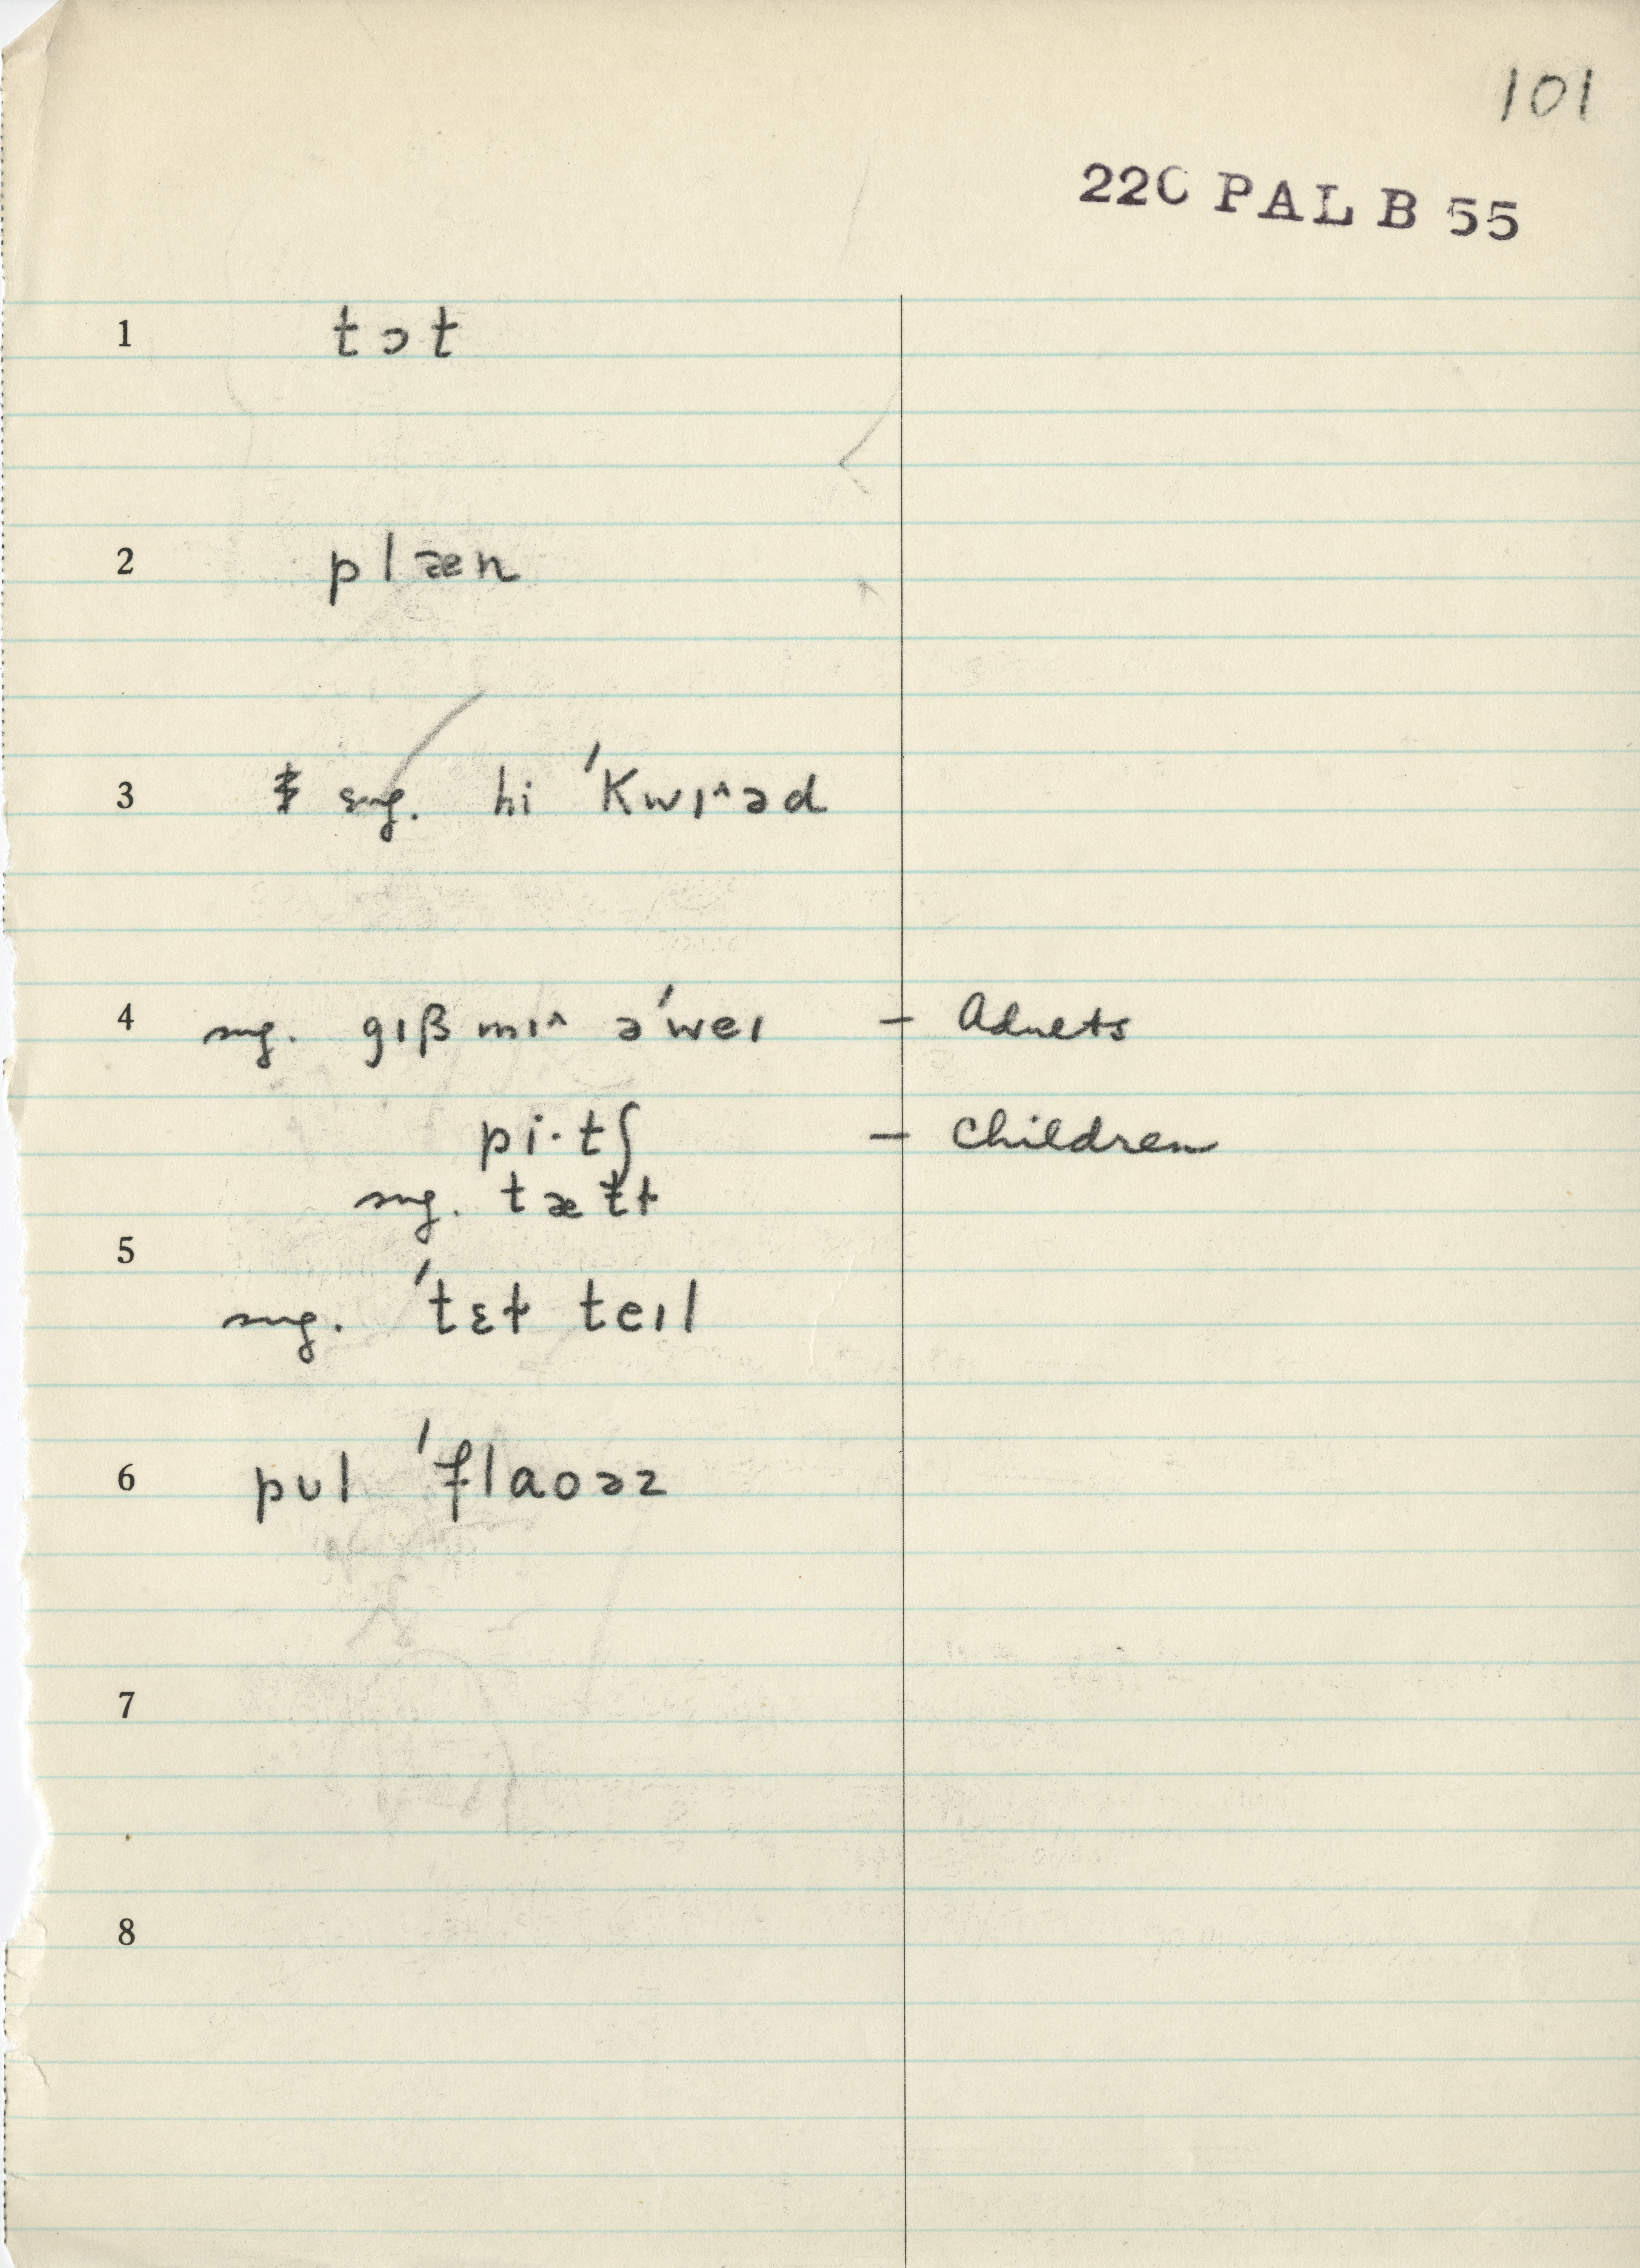 101
22C PAL B 55
1 tɔt
2 plæn
3 sug. hi ˈKwɪ^əd
4 sug. gɪβ mɪ^ əˈweɪ – Adults
pi·tʃ – Children
sug. tætɫ
5
sug. ˈtɛɫ teɪl
6 pʊl ˈflaoəz
7
8